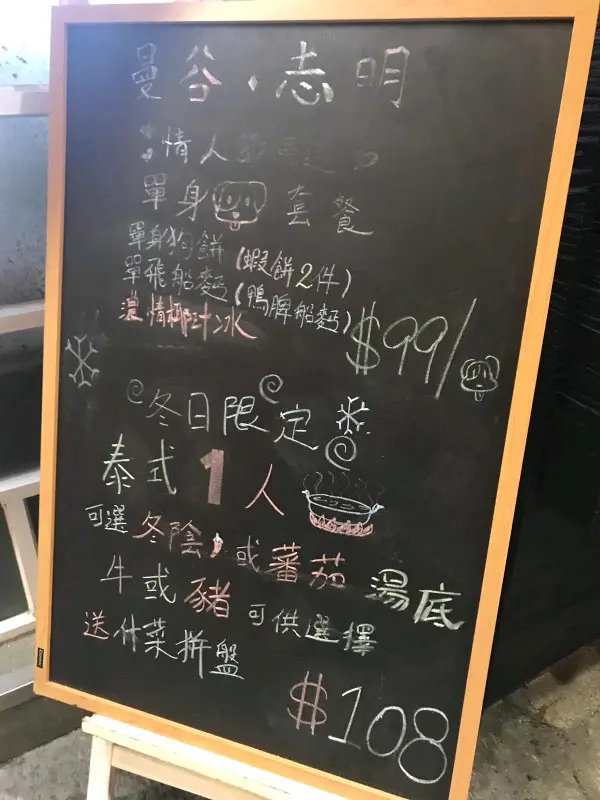 曼谷·志明
情人節
單身 套餐
單身狗餅(蝦餅2件)
單飛船麵(鴨脾船麵)
濃情椰汁冰
$99/
冬日限定
泰式1人
可選冬陰,或蕃茄湯底
牛或豬可供選擇
送什菜拼盤
$108